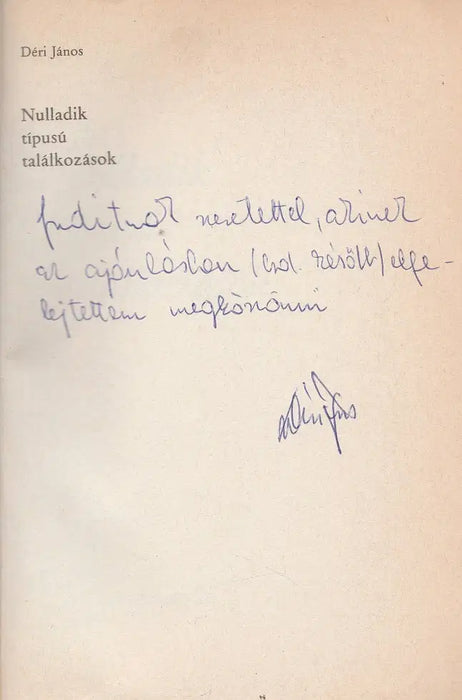 Déri János
Nulladik
típusú
találkozások
Juditnak szeretettel, akinek
az ajánlásban (lsd. később) elfe-
lejtettem megköszönni
Déri János